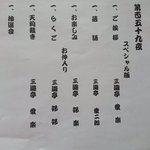 第百五十九夜
スペシャル版
一、ご挨拶 三遊亭 楽
一、落語 三遊亭
一、お楽しみ 三遊亭
お仲入り
一、らくご 三遊亭
一、天狗裁き 三遊亭 楽
一、抽選会